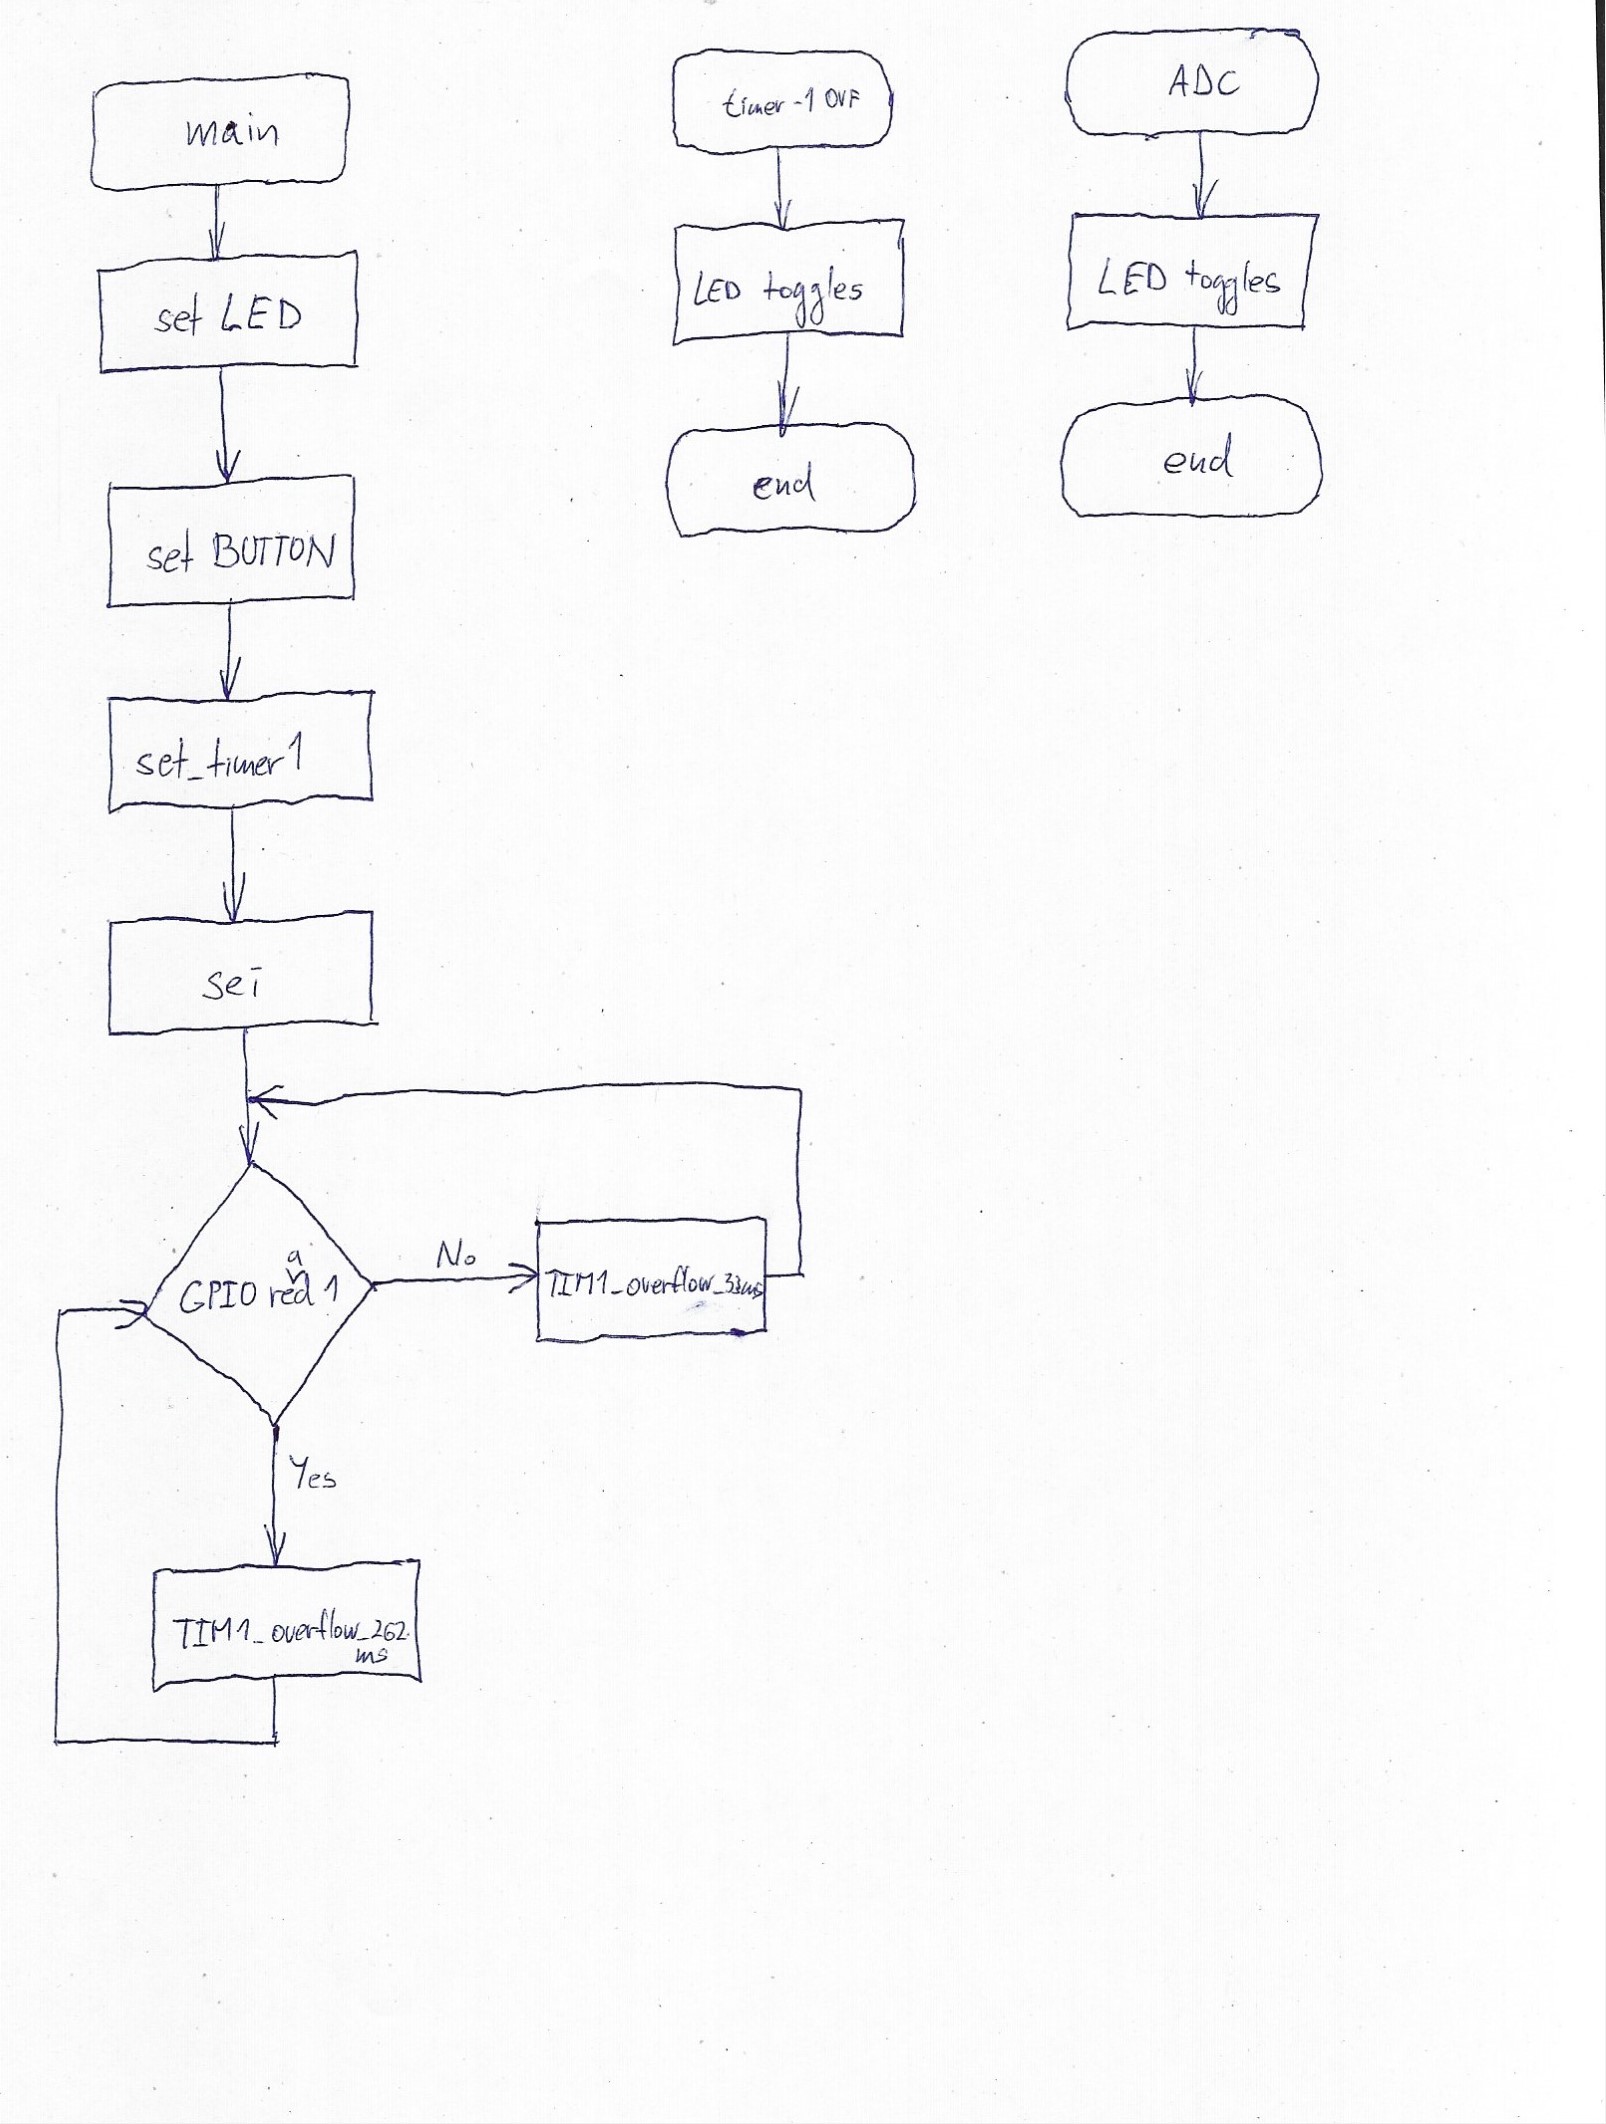 main
set LED
set BUTTON
set_timer1
sei
GPIO read 1
No
TIM1_overflow_33ms
Yes
TIM1_overflow_262
ms
timer-1 OVF
LED toggles
end
ADC
LED toggles
end